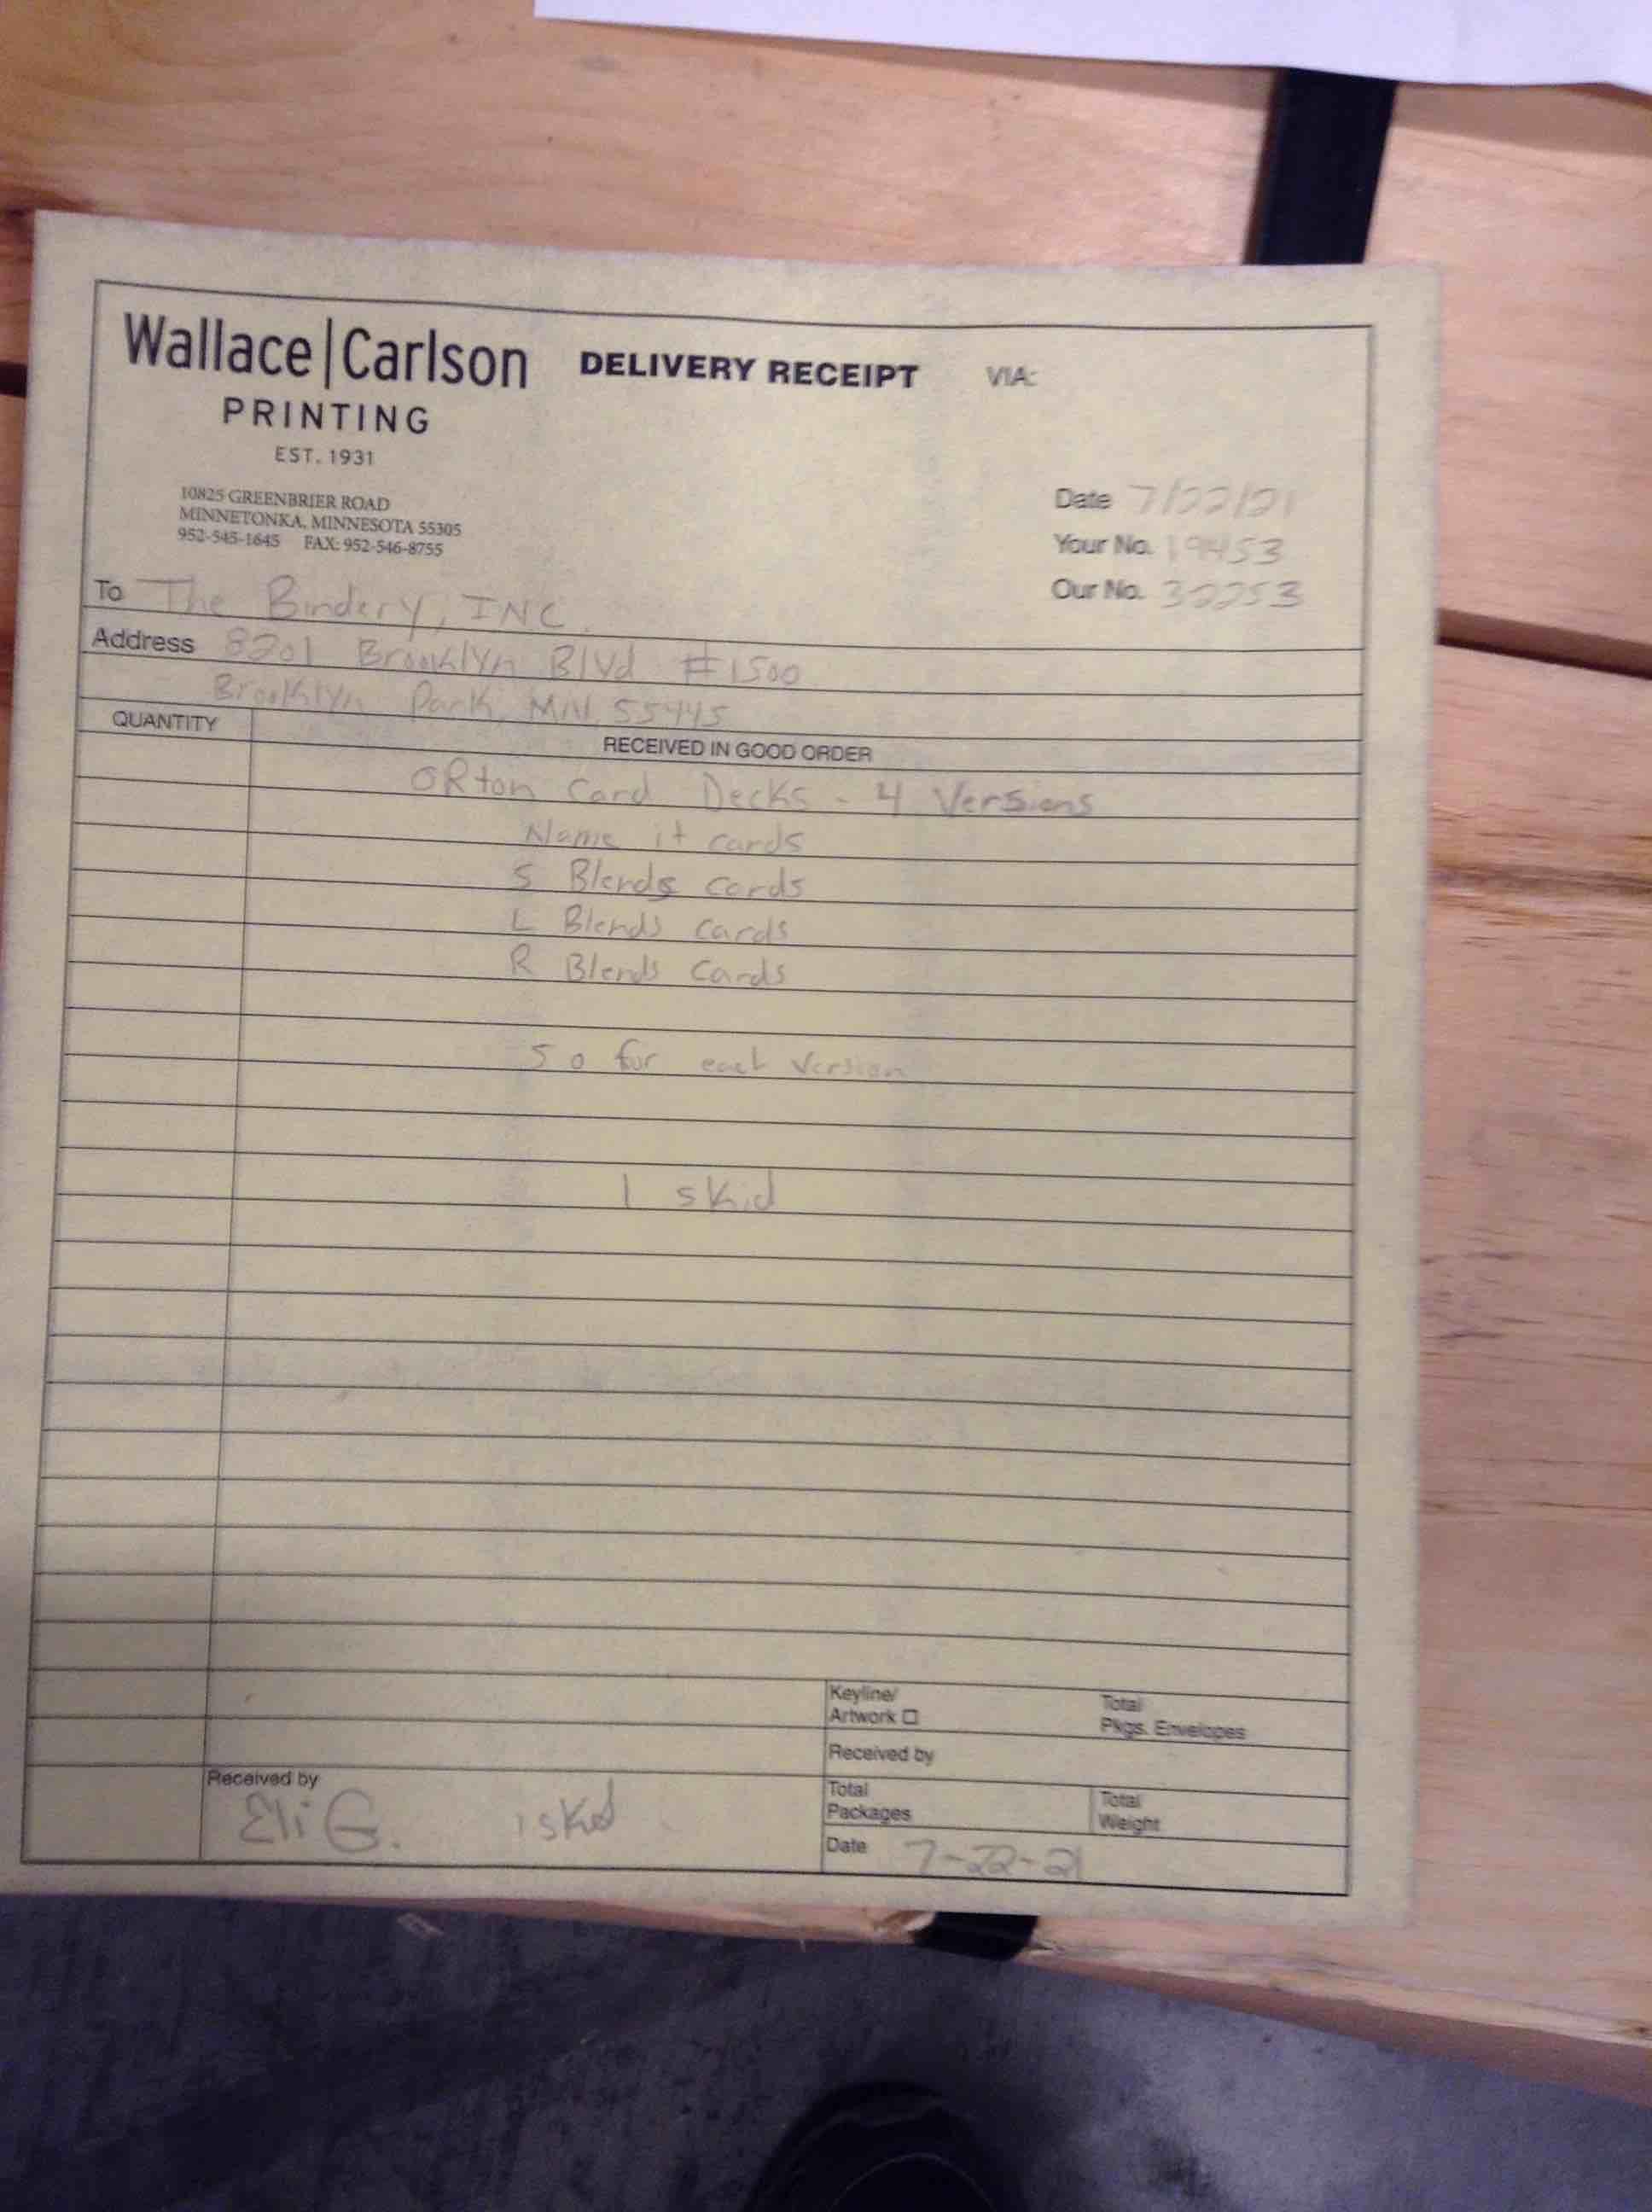 Wallace|Carlson DELIVERY RECEIPT VIA:
PRINTING
EST. 1931
10825 GREENBRIER ROAD
MINNETONKA, MINNESOTA 55305
952-545-1645 FAX: 952-546-8755
Date 7/22/21
Your No. 19453
Our No. 32253
To The Bindery, INC.
Address 8201 Brooklyn Blvd #1500
Brooklyn Park, MN 55445
QUANTITY RECEIVED IN GOOD ORDER
ORton Card Decks - 4 Versions
Name it cards
S Blends cards
L Blends cards
R Blends Cards
50 for each Version
1 skid
Keyline/
Artwork
Total
Pkgs. Envelopes
Received by
Received by
Eli G. 1 skid
Total
Packages
Total
Weight
Date 7-22-21